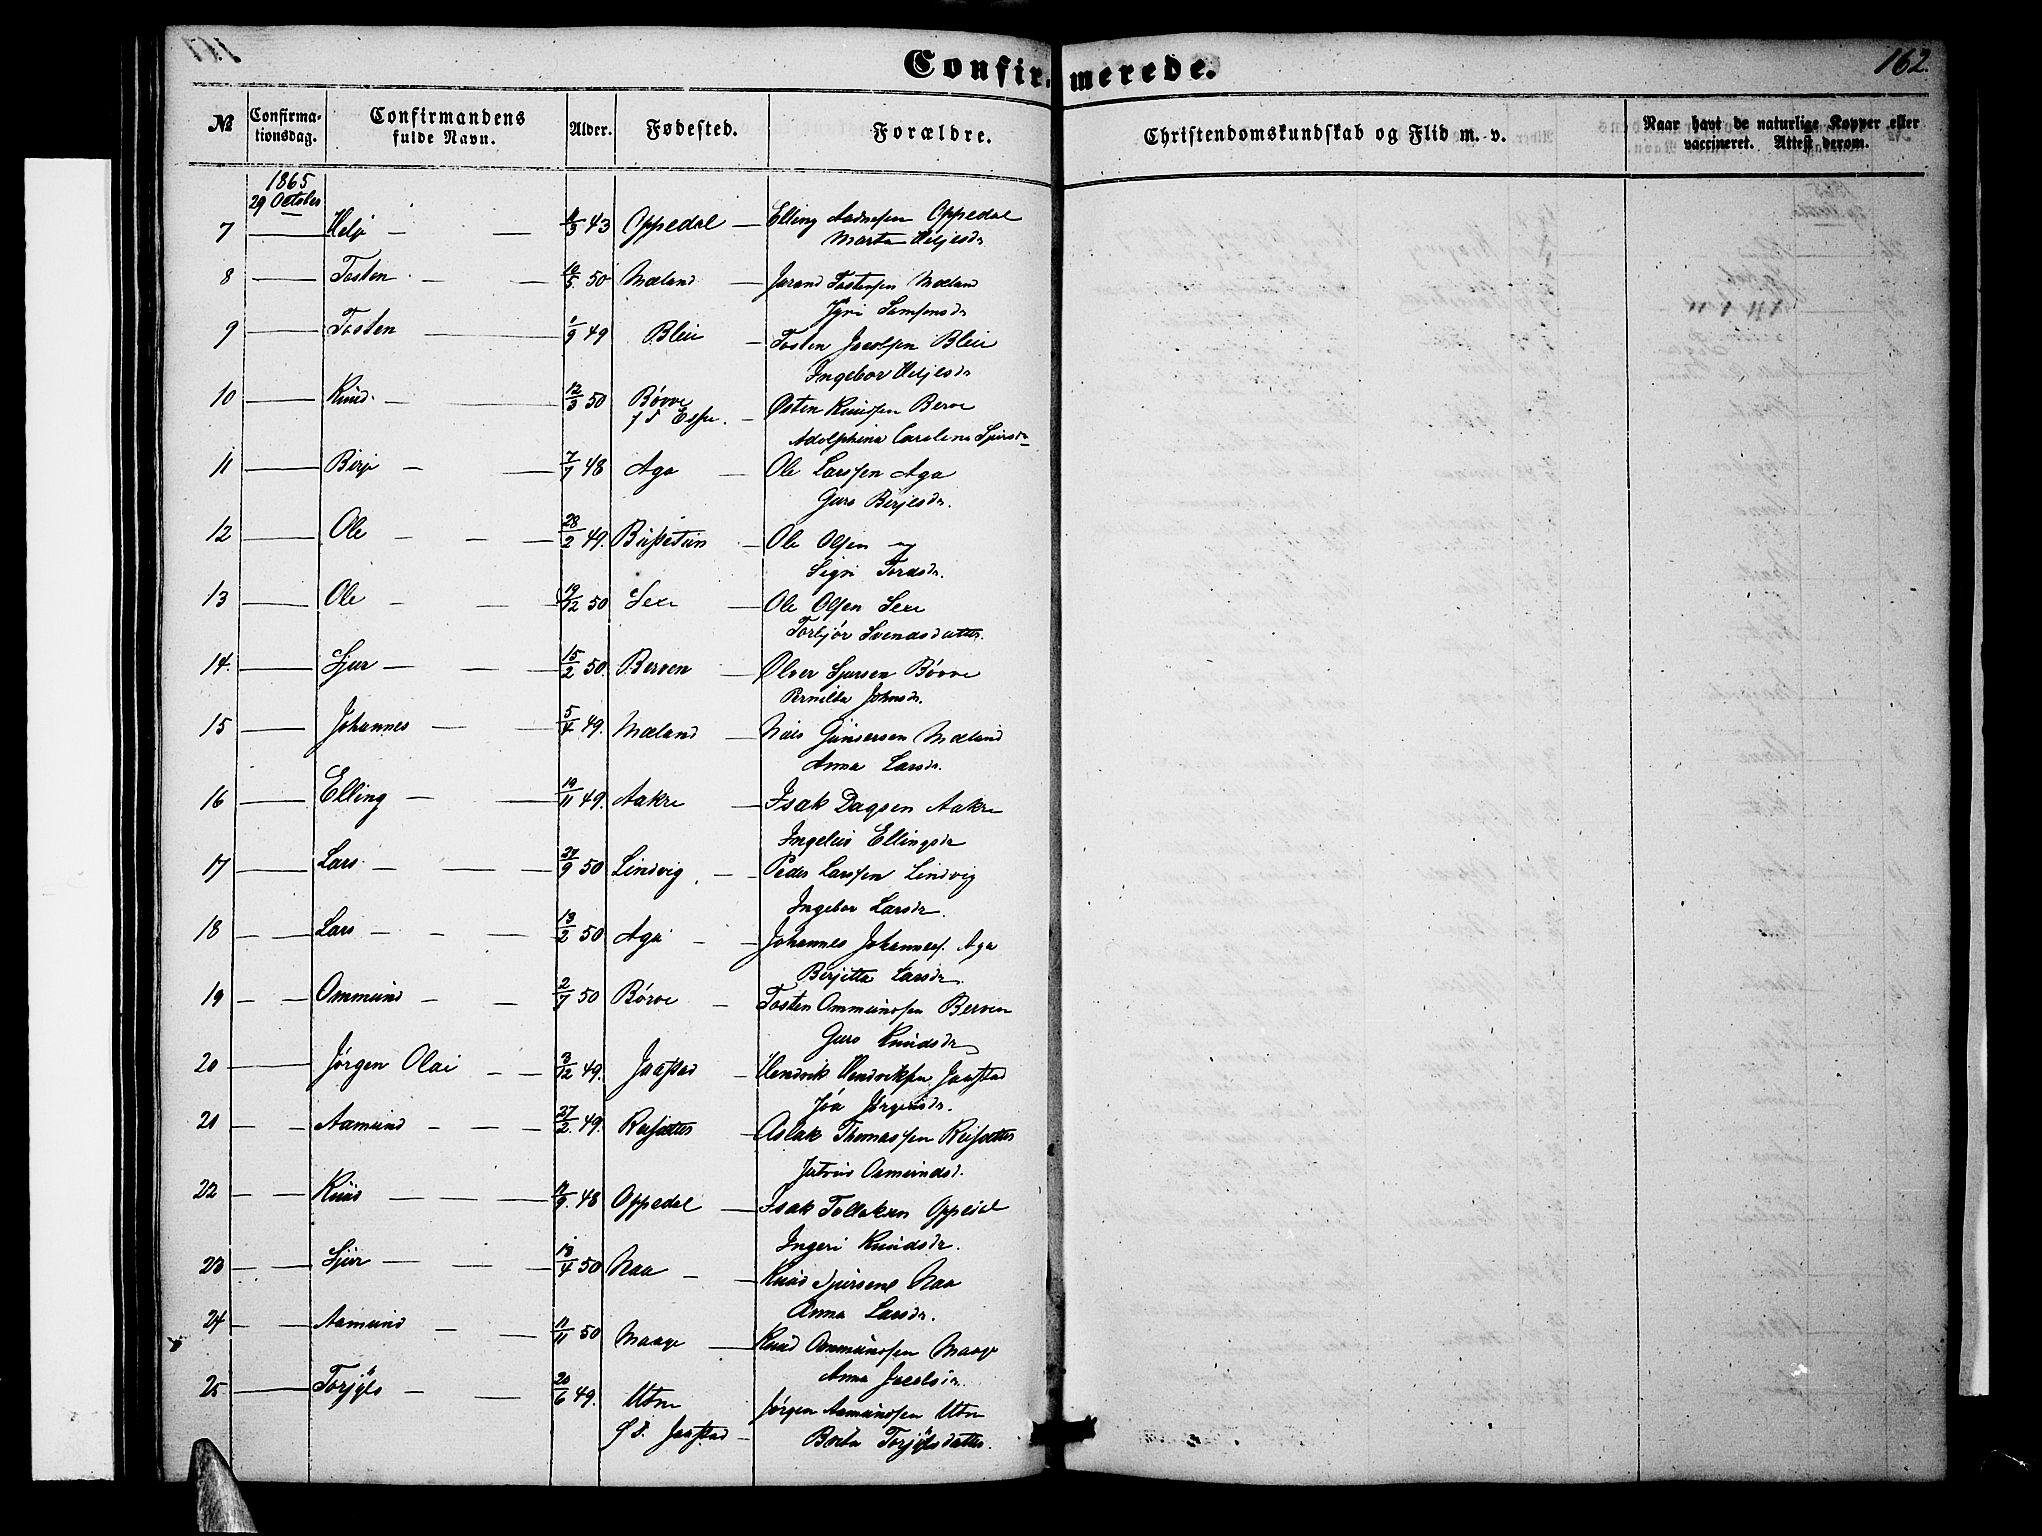 Confirmerede.
162.
№ Confirmationsdag. Confirmandens fulde Navn. Alder. Fødested. Forældre. Christendomskundskab og Flid m. v. Naar havt de naturlige Kopper eller vaccineret. Attest derom.
1865
29 October
7 Helje 43 Oppedal Elling Aadnesen Oppedal
Marta Heljesdr
8 Tosten 50 Mæland Jarand Tostensen Mæland
Samsonsdr
9 Tosten 1/9 49 Bleie Tosten Jacobsen Bleie
Ingebor Heljesdr
10 Knud 12/3 50 Børve Østen Knudsen Berve
f S Espe. Adolphina Carolina
11 Birje 7/7 48 Aga Ole Larssen Aga
Guro Birjesdr.
12 Ole 28/2 49. Ole Olsen
Sigri Tordsdr.
13 Ole 19/12 50 Sexe Ole Olsen Sexe
Torbjør Svendsdatter.
14. Sjur 15/2 50. Berven Olver Sjursen Børve
Pernilla Johnsdr.
15 Johannes 5/4 49. Mæland Nils Gunnersen Mæland
Anna Larsdr.
16 Elling 19/11 49. Aakre Isak Dagsen Aakre
Ingeleiv Ellingsdr
17 Lars 27/9 50 Lindvig Peder Larssen Lindvig
Ingebor Larsdr.
18 Lars 13/2 50 Aga Johannes Johanness. Aga
Birjitta Larsdr.
19 Ommund 2/7 50 Børve Tosten Ommundsen Berven
Guro Knudsdr
20 Jørgen Olai 3/12 49. Jaastad Hendrik Hendriksen Jaastad
Jørgensdr.
21 Aamund 27/2. 49. Reisæter Aslak Thomassen Reisæter
Osmundsd.
22 Knud 48 Oppedal Isak Tollaksen Oppedal
Ingeri Knudsdr.
23 Sjur 18/4 50 Naa Knud Sjursene Naa
Anna Larsdr.
24 Aamund 11/11 50 Maage Knud Ommundsen Maage
Anna Jacobsdr.
25 Torjyls 20/6 49. Utne Jørgen Aamundsen Utne
f S. Jaastad Torjylsdatter.